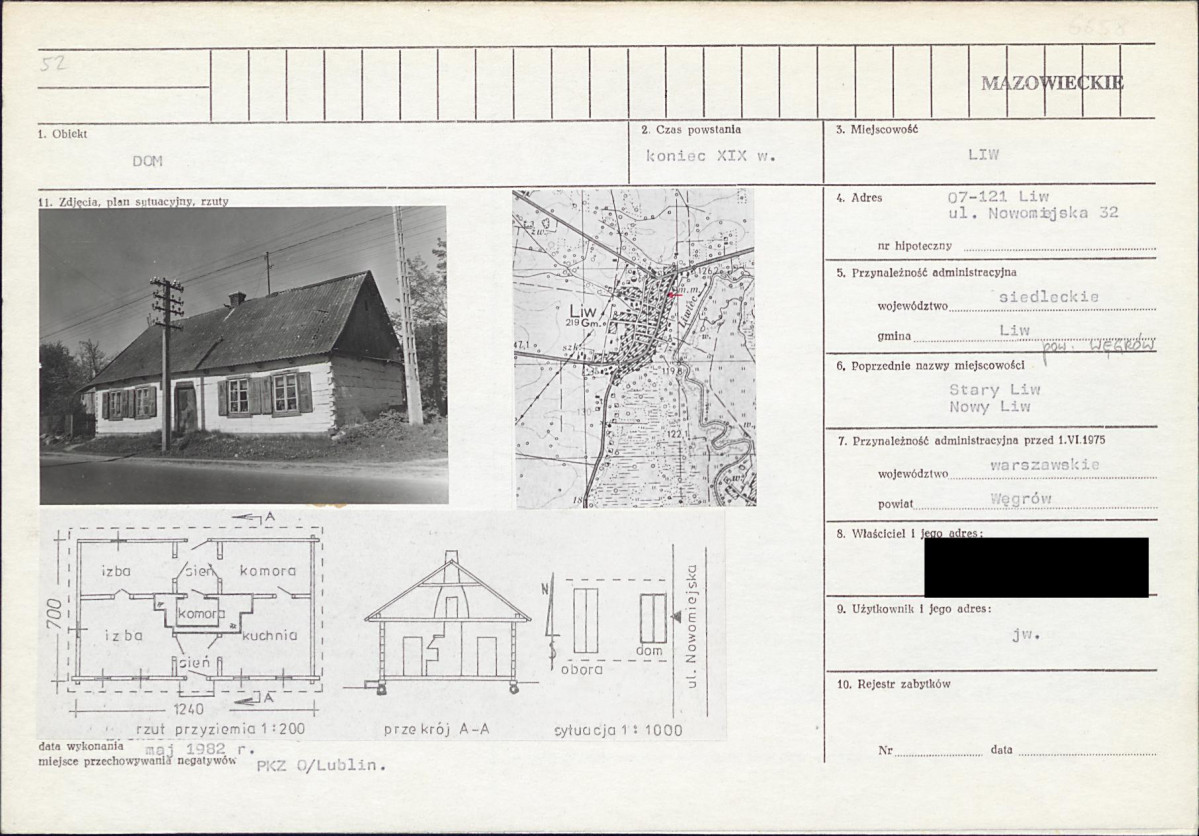 6658
52
MAZOWIECKIE
1. Obiekt
DOM
2. Czas powstania
koniec XIX w.
3. Miejscowość
LIW
11. Zdjęcia, plan sytuacyjny, rzuty
4. Adres
07-121 Liw
ul. Nowomiejska 32
nr hipoteczny
5. Przynależność administracyjna
województwo siedleckie
gmina Liw
pow. WĘGRÓW
6. Poprzednie nazwy miejscowości
Stary Liw
Nowy Liw
7. Przynależność administracyjna przed 1.VI.1975
województwo warszawskie
powiat Węgrów
8. Właściciel i jego adres:
9. Użytkownik i jego adres:
jw.
10. Rejestr zabytków
Nr data
126,2
m.m.
Liw
219 Gm.
Liwiec
szk.
47,1
119,8
122,1
A
izba
sień
komora
komora
izba
kuchnia
sień
A
700
1240
rzut przyziemia 1:200
przekrój A-A
N
S
obora
dom
ul. Nowomiejska
sytuacja 1:1000
data wykonania maj 1982 r.
miejsce przechowywania negatywów PKZ O/Lublin.